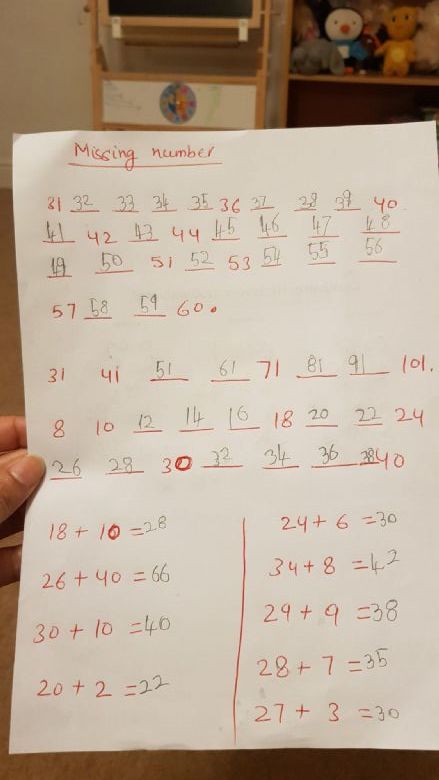 Missing number
31 32 33 34 35 36 37 38 39 40
41 42 43 44 45 46 47 48
49 50 51 52 53 54 55 56
57 58 59 60.
31 41 51 61 71 81 91 101.
8 10 12 14 16 18 20 22 24
26 28 30 32 34 36 38 40
18 + 10 = 28
26 + 40 = 66
30 + 10 = 40
20 + 2 = 22
24 + 6 = 30
34 + 8 = 42
29 + 9 = 38
28 + 7 = 35
27 + 3 = 30